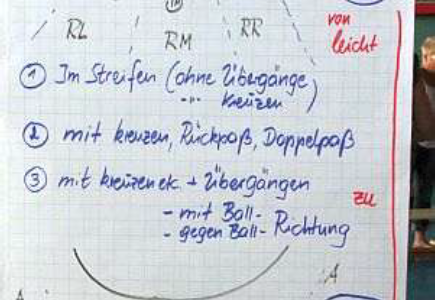 RL RM RR
von
leicht
① Im Streifen (ohne Übergänge,
-"- kreuzen)
② mit kreuzen, Rückpaß, Doppelpaß
③ mit kreuzen etc. + Übergängen
zu
- mit Ball-
- gegen Ball- Richtung
A
A